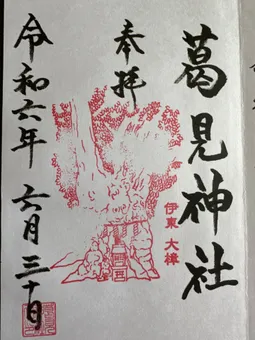 葛見神社
伊東 大樟
奉拝
令和六年 六月三十日